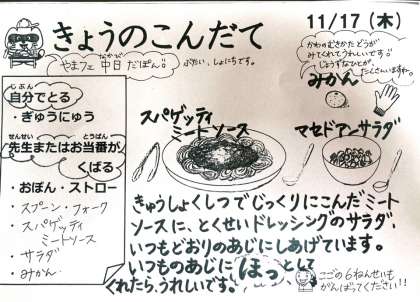 きょうのこんだて
11/17 (木)
やまフェ 中日 だぽん!!
なかび
ぶたい、しょにちです。
かわのむきかたどうが
みてくれてうれしいです!!
じょうずなひとが、
たくさんいますね。
みかん
じぶん
自分でとる
・ぎゅうにゅう
せんせい とうばん
先生またはお当番が
くばる
・おぼん・ストロー
・スプーン・フォーク
・スパゲッティ
ミートソース
・サラダ
・みかん
スパゲッティ
ミートソース
マセドアンサラダ
きゅうしょくしつでじっくりにこんだミート
ソースに、とくせいドレッシングのサラダ。
いつもどおりのあじにしあげています。
いつものあじに ほっ として
くれたら、うれしいです。
ごごの6ねんせいも
がんばってください!!